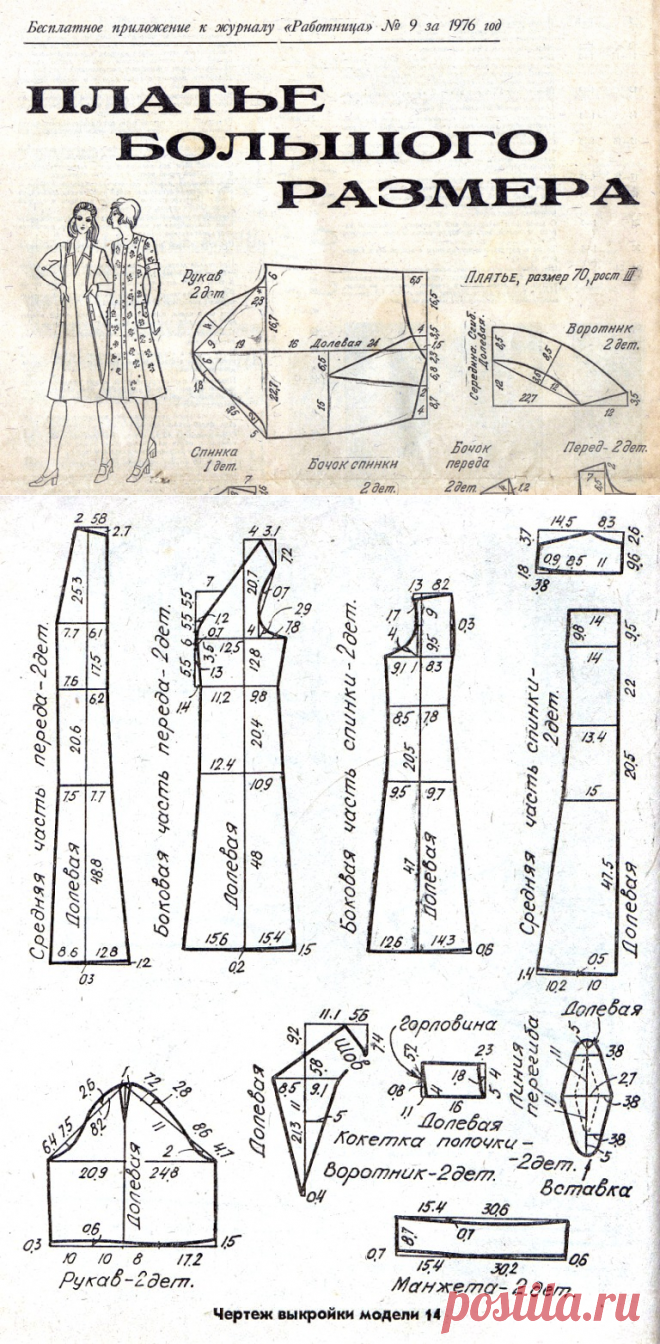 Бесплатное приложение к журналу «Работница» № 9 за 1976 год
ПЛАТЬЕ
БОЛЬШОГО
РАЗМЕРА
Рукав
2 дет.
6
23
16,7
6,5
16,5
4
9
19
16
Долевая 24
3,5
1,5
6
6,5
2,3
6,8
22,7
15
2
4
8,7
3,5
5
ПЛАТЬЕ, размер 70, рост III
Воротник
2 дет.
Середина. Сгиб.
Долевая.
8,5
8,5
12
22,7
12
3,5
Спинка
1 дет.
Бочок спинки
2 дет.
Бочок
переда
2 дет.
Перед-2 дет.
7
1,2
7
2
8,5
Средняя часть переда-2дет.
2 5.8
2.7
25.3
7.7 6.1
17.5
7.6
6.2
20.6
7.5 7.7
Долевая
48.8
8.6 12.8
0.3
1.2
Боковая часть переда-2дет.
4 3.1
7.2
20.7
7
5.5
5.5
1.2
0.7
0.7
2.9
7.8
6
4
12.5
12.8
3.5
1.3
5.5
1.4
11.2 9.8
20.4
12.4
10.9
Долевая
48
15.6 15.4
1.5
0.2
Боковая часть спинки-2дет.
1.3 8.2
1.7
9
0.3
4
9.5
9.1 1 8.3
8.5 7.8
20.5
9.5 9.7
47
Долевая
12.6 14.3
0.6
Средняя часть спинки-
2дет.
14.5 8.3
3.7
2.6
0.9 8.5 11
9.6
1.8
3.8
9.8
14
9.5
14
22
13.4
20.5
15
47.5
Долевая
1.4
0.5
10.2 10
2.6
1
7.2
2.8
6.4
7.5
8.2
11
8.6
4.7
2
20.9 24.8
Долевая
0.3
0.6
1.5
10 10 8 17.2
Рукав-2дет.
11.1 5.6
9.2
7.4
Шов
Долевая
5.8
8.5 9.1
5
21.3
0.4
Воротник-2дет.
Горловина
5.2
2.3
0.8
1.8
4
4
5
11
16
Долевая
Кокетка полочки-
-2дет.
Долевая
Линия
перегиба
5
11
3.8
2.7
11
3.8
3.8
5
Вставка
15.4 30.6
0.7
8.7
0.7
0.6
15.4 30.2
Манжета-2дет.
Чертеж выкройки модели 14
postila.ru